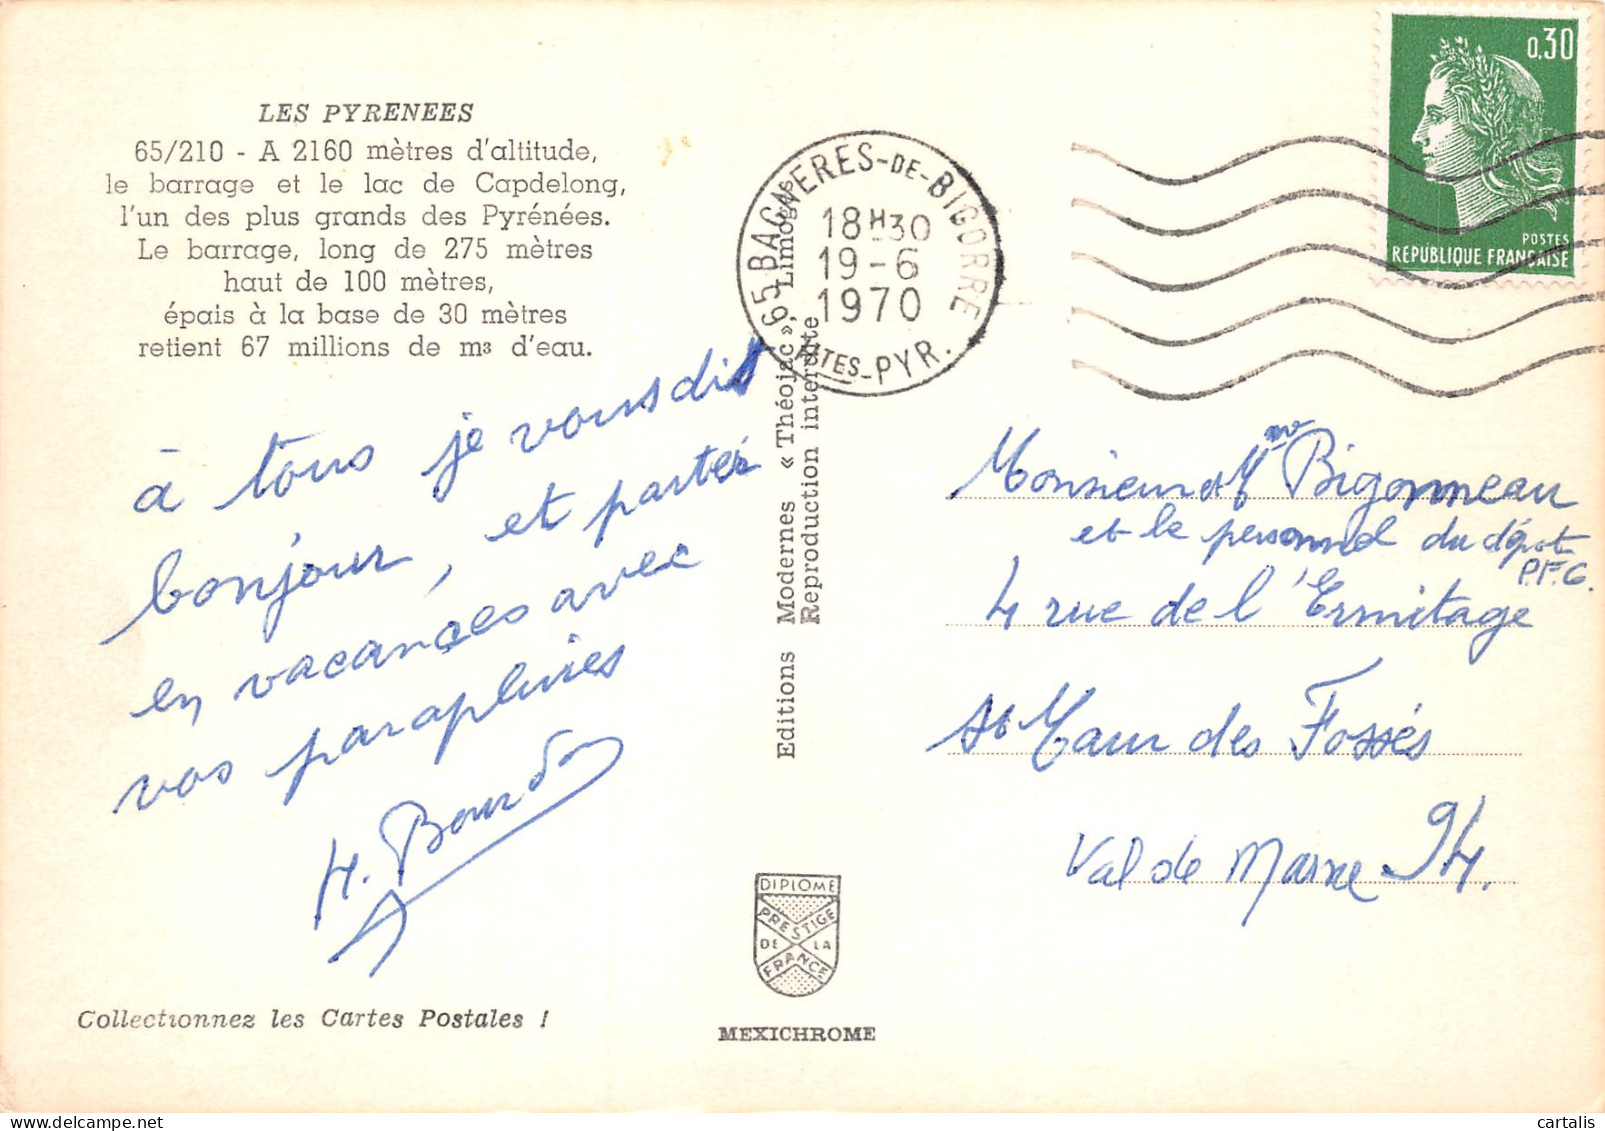 LES PYRENEES
65/210 - A 2160 mètres d'altitude,
le barrage et le lac de Capdelong,
l'un des plus grands des Pyrénées.
Le barrage, long de 275 mètres
haut de 100 mètres,
épais à la base de 30 mètres
retient 67 millions de m3 d'eau.
à tous je vous dis
bonjour, et partez
en vacances avec
vos parapluies
H. Bourdon
Collectionnez les Cartes Postales !
Editions Modernes « Théojac », Limoges
Reproduction interdite
DIPLOME
PRESTIGE
DE LA
FRANCE
MEXICHROME
65 BAGNERES-DE-BIGORRE
18H30
19-6
1970
HTES-PYR.
0,30
POSTES
REPUBLIQUE FRANÇAISE
Monsieur et Mme Bigonneau
et le personnel du dépot
P.F.G.
4 rue de l'Ermitage
St Maur des Fossés
Val de Marne 94.
cartalis